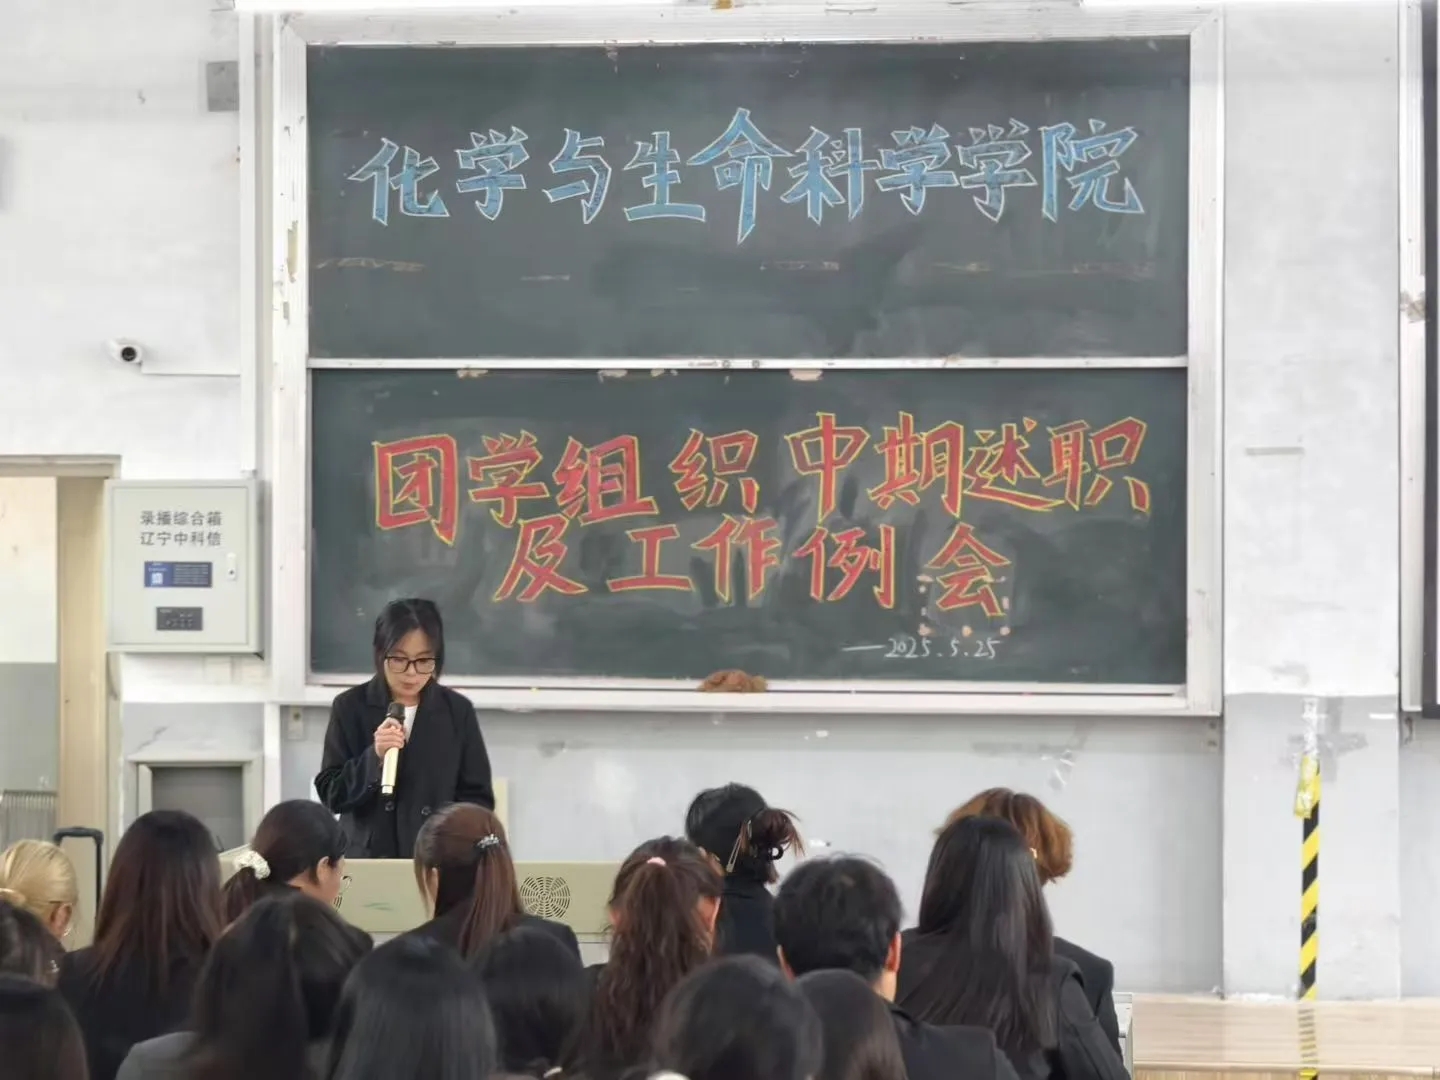 化学与生命科学学院
团学组织中期述职
及工作例会
—2025.5.25
录播综合箱
辽宁中科信